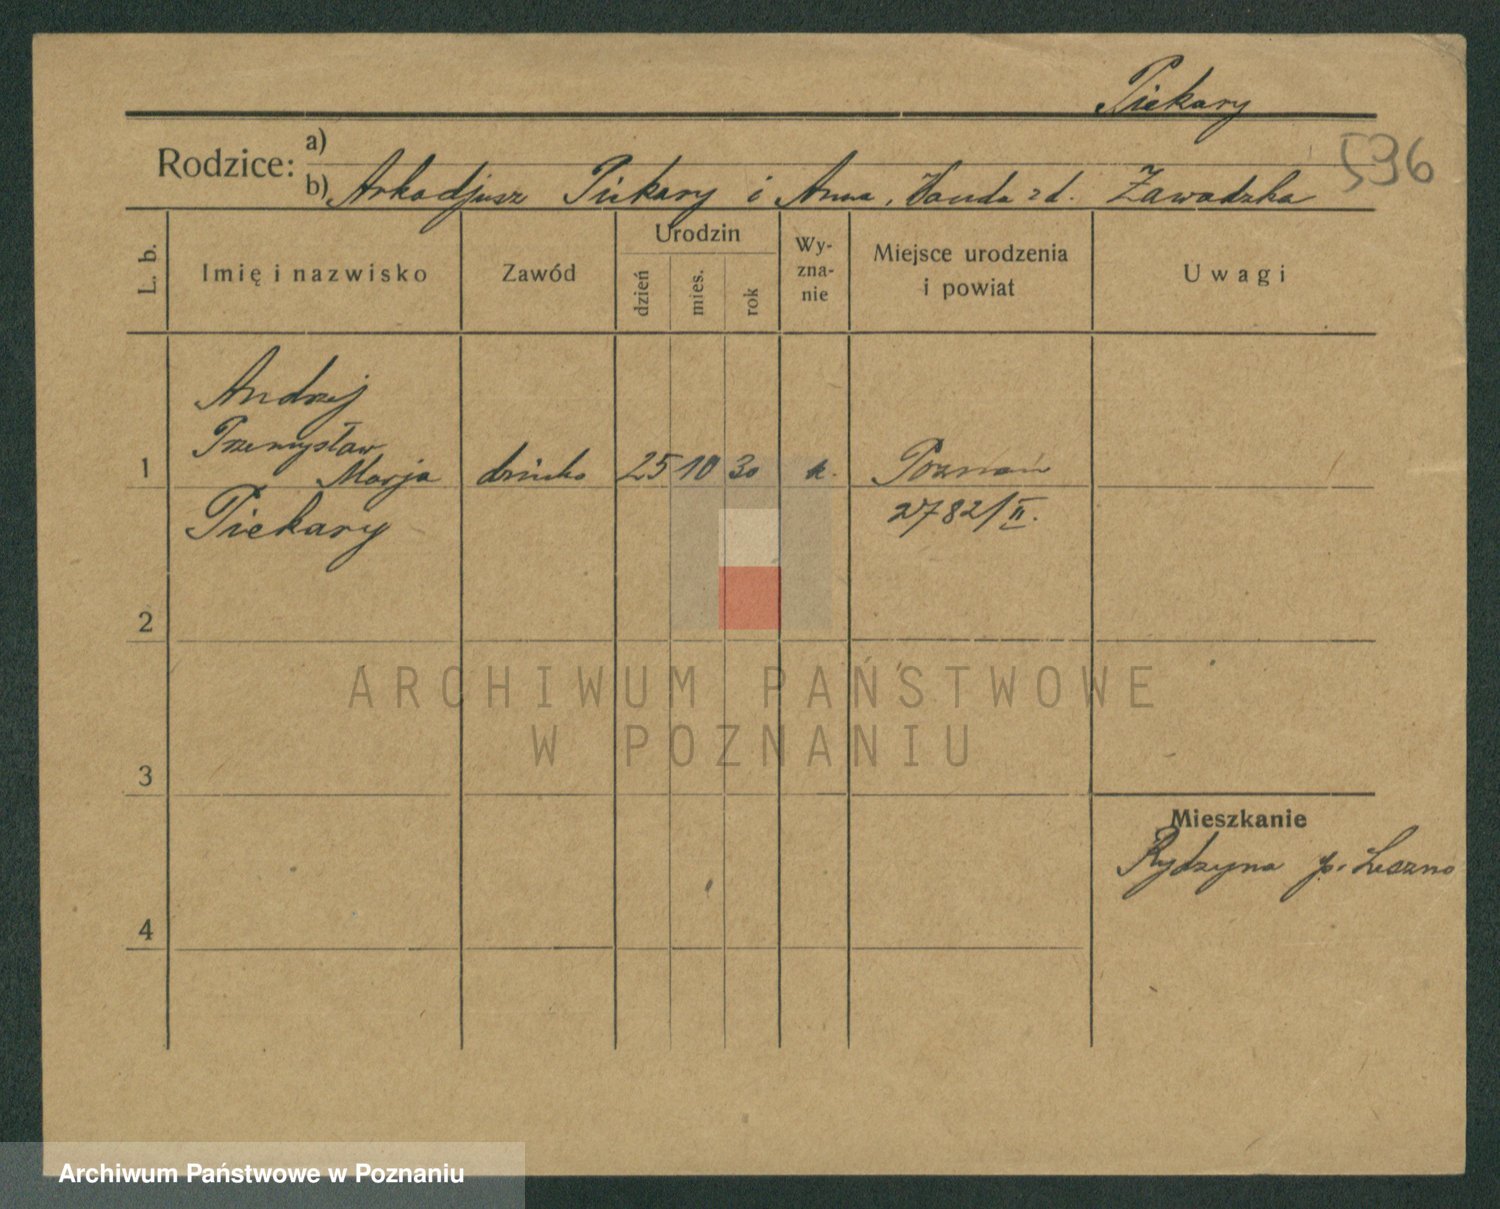 Piekary
596
Rodzice: a)
b) Arkadjusz Piekary i Anna, Wanda zd. Zawadzka
L. b.
Imię i nazwisko
Zawód
Urodzin
dzień
mies.
rok
Wy-
zna-
nie
Miejsce urodzenia
i powiat
Uwagi
Andrzej
Przemysław
1 Marja dziecko 25 10 30 k. Poznań
Piekary 2782/II.
2
ARCHIWUM PAŃSTWOWE
W POZNANIU
3
Mieszkanie
Rydzyna p. Leszno
4
Archiwum Państwowe w Poznaniu